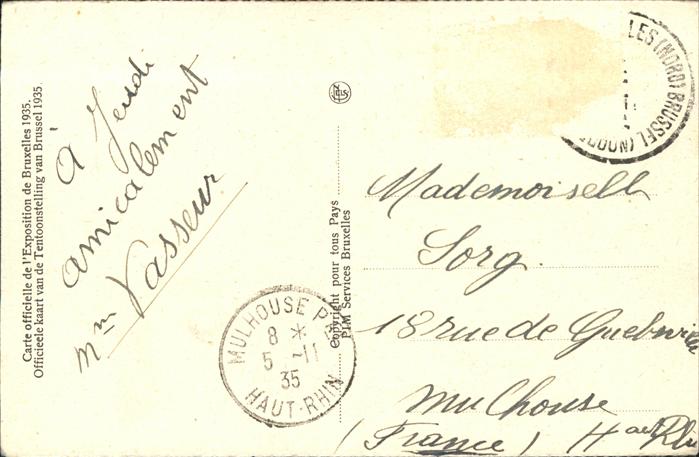 Carte officielle de l'Exposition de Bruxelles 1935.
Officieele kaart van de Tentoonstelling van Brussel 1935
à Jeudi
amicalement
Mm Vasseur
Copyright pour tous Pays
PIM Services Bruxelles
MULHOUSE
8 *
5 -11
35
HAUT-RHIN
LES (NORD) BRUSSEL (NOORD
Mademoiselle
Sorg.
18 rue de Guebwiller
Mulhouse
(France) Haut Rhin